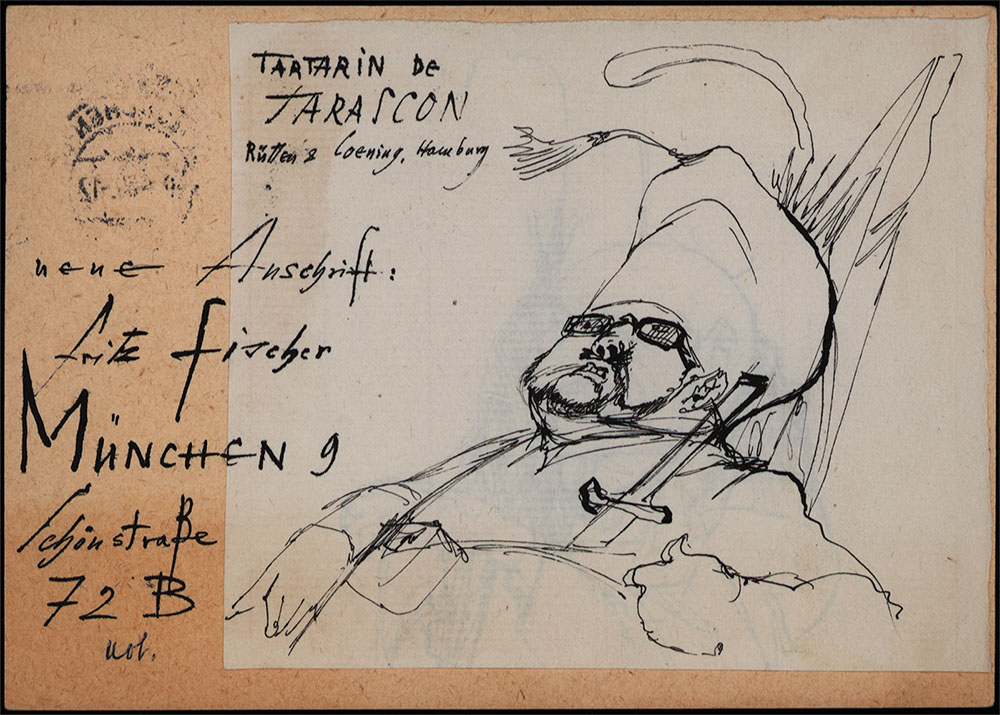 TARTARIN DE
TARASCON
Rütten & Loening, Hamburg
neue Anschrift:
Fritz Fischer
MÜNCHEN 9
Schönstraße
72 B
not.